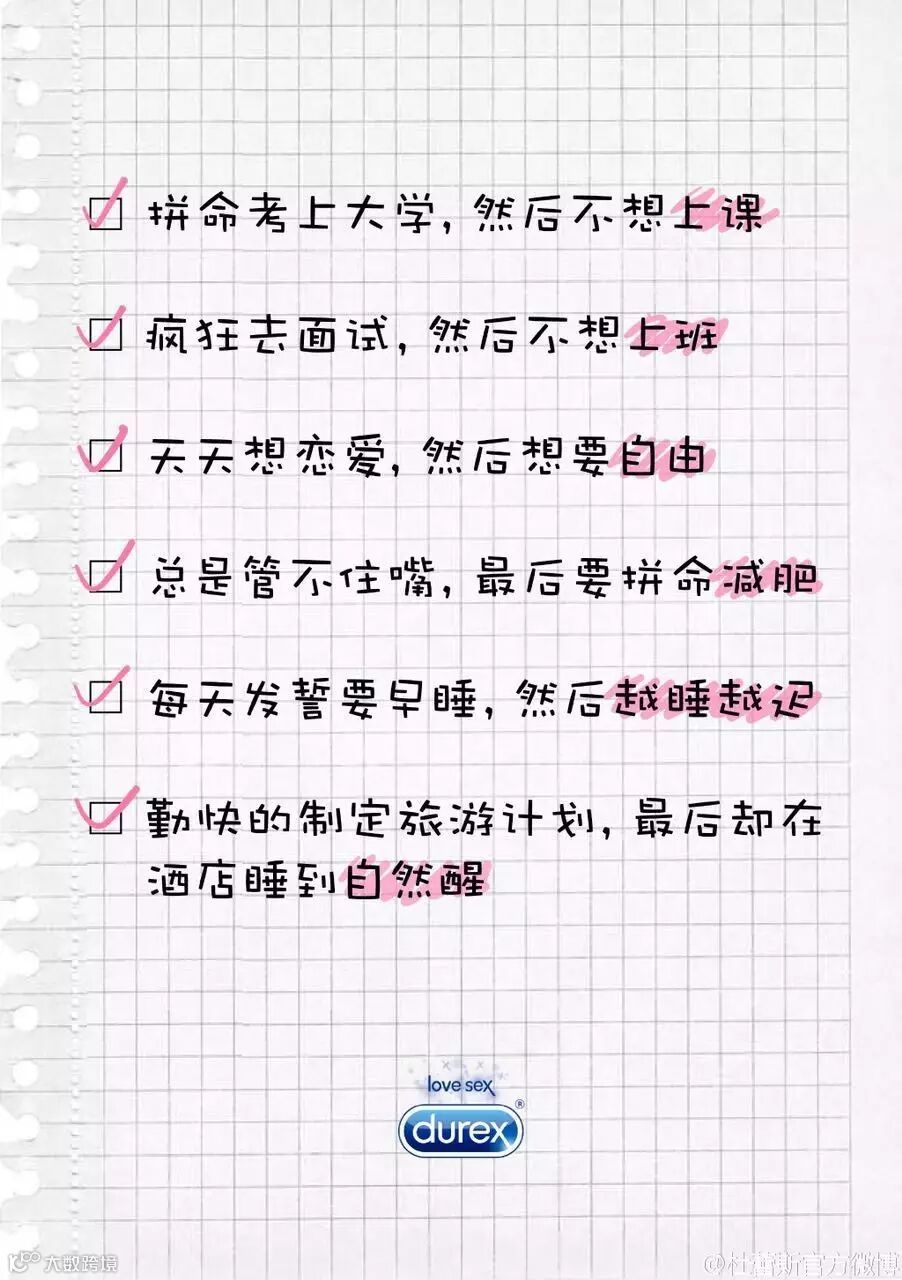 拼命考上大学,然后不想上课
疯狂去面试,然后不想上班
天天想恋爱,然后想要自由
总是管不住嘴,最后要拼命减肥
每天发誓要早睡,然后越睡越迟
勤快的制定旅游计划,最后却在
酒店睡到自然醒
love sex
durex®
大数跨境
@杜蕾斯官方微博